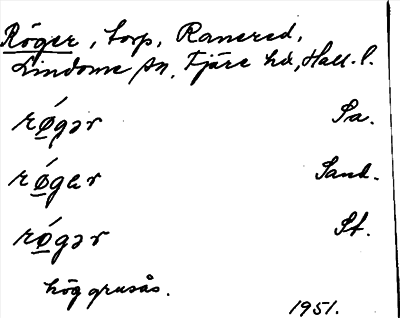 Röger, torp, Ranered,
Lindome sn, Fjäre hd, Hall. l.
rǿgər Sa.
rǿgər Sand.
rǿgər St.
hög grusås.
1951.